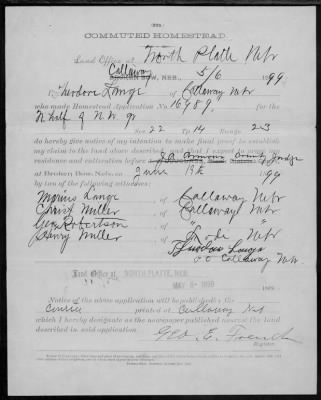 COMMUTED HOMESTEAD.
Land Office at North Platte Nebr
Callaway NEB., 5/6 1899
I, Theodore Lange of Callaway Nebr
who made Homestead Application No. 16989 for the
N half of N W qr
Sec 22 Tp 14 Range 23
do hereby give notice of my intention to make final proof to establish
my claim to the land above described, and that I expect to prove my
residence and cultivation before J. A. Armour County Judge
at Broken Bow, Neb., on June 19th 1899
by two of the following witnesses:
Lange of Callaway Nebr
Miller of Callaway Nebr
Geo Robertson of
Henry Miller of Nebr
Theodore Lange
P O Callaway Nebr.
Land Office at NORTH PLATTE, NEB.
MAY 8 1899
Notice of the above application will be published in the
Courier printed at Callaway Neb
which I hereby designate as the newspaper published nearest the land
described in said application.
Geo. E. French
Register.